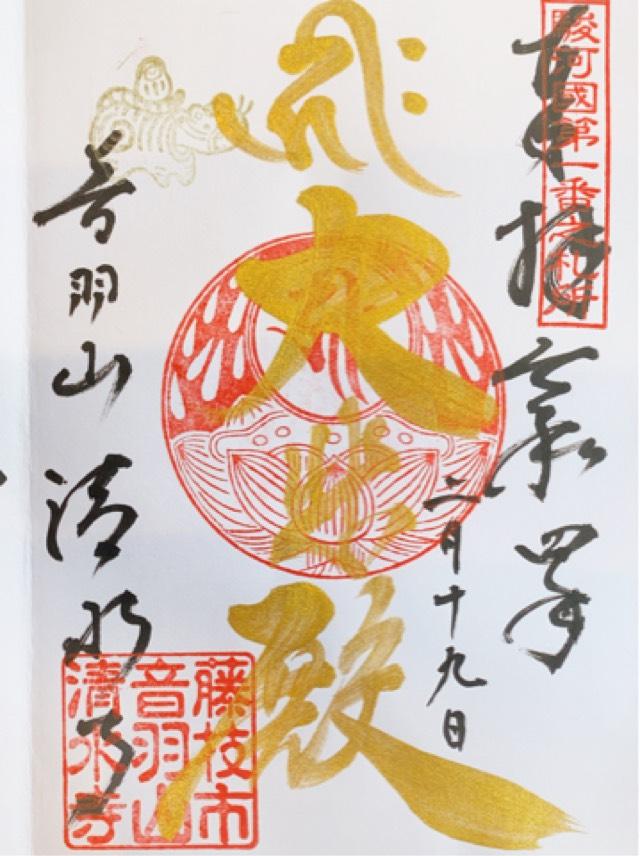 駿河國第一番之札所
奉拝 令和四年
二月十九日
大悲殿
音羽山 清水寺
藤枝市
音羽山
清水寺